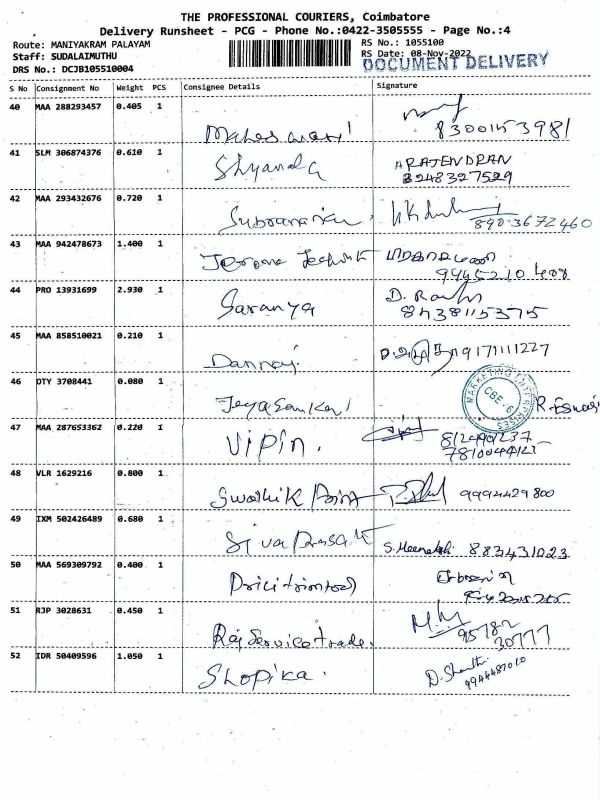 THE PROFESSIONAL COURIERS, Coimbatore
Delivery Runsheet - PCG - Phone No.:0422-3505555 - Page No.:4
Route: MANIYAKRAM PALAYAM
RS No.: 1055100
Staff: SUDALAIMUTHU
RS Date: 08-Nov-2022
DRS No.: DCJB105510004
DOCUMENT DELIVERY
S No Consignment No Weight PCS Consignee Details Signature
40 MAA 288293457 0.405 1
8300153981
41 SLM 306874376 0.610 1
Shyamda
RAJENDRAN
8248327529
42 MAA 293432676 0.720 1
8903672460
43 MAA 942478673 1.400 1
Jerome
44 PRO 13931699 2.930 1
Saranya
8438115375
45 MAA 858510021 0.210 1
9171111227
46 DTY 3708441 0.080 1
Jeyasankari
MARKETING ENTERPRISES
CBE-6
47 MAA 287653362 0.220 1
Vipin.
48 VLR 1629216 0.800 1
Swathik Paint
9994429800
49 IXM 502426489 0.680 1
Sivaprasath
S. Meenakshi 883431023
50 MAA 569309792 0.400 1
51 RJP 3028631 0.450 1
Raj Service trade.
95782
30777
52 IDR 50409596 1.050 1
Shopika.
D. Shanthi
9944487010